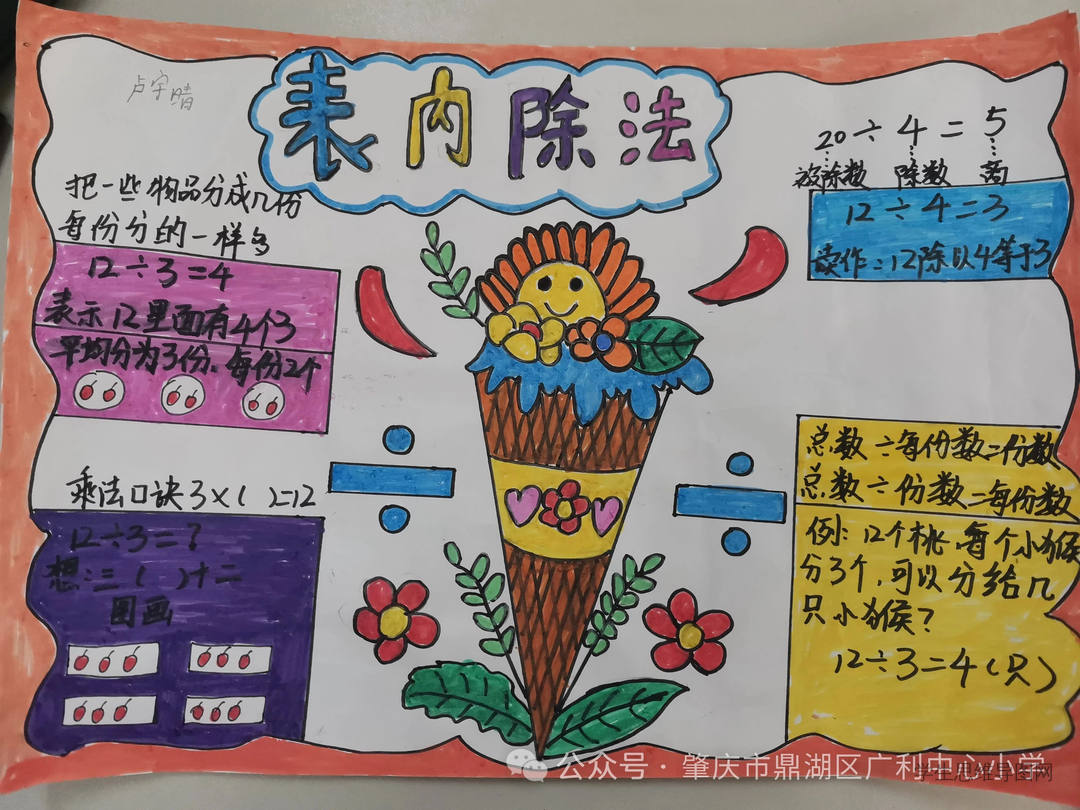 卢宇晴
表内除法
把一些物品分成几份
每份分的一样多
12÷3=4
表示12里面有4个3
平均分为3份、每份2个
乘法口诀3×( )=12
12÷3=?
想:三( )十二
图画
20÷4=5
被除数 除数 商
12÷4=3
读作:12除以4等于3
总数÷每份数=份数
总数÷份数=每份数
例:12个桃,每个小猴
分3个,可以分给几
只小猴?
12÷3=4(只)
公众号·肇庆市鼎湖区广利中心小学
学生思维导图网